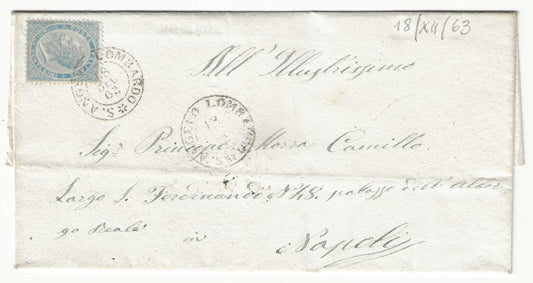 18/XII/63
S. ANGELO LOMBARDO
All' Illustrissimo
S. ANGELO LOMBARDO
Sig. Principe Morra Camillo
Largo S. Ferdinando N° 48. palazzo dell' Alber
go Reale
in
Napoli